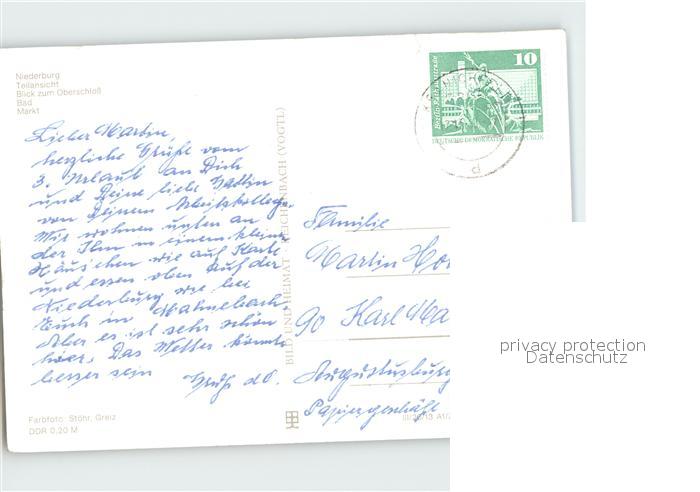 Niederburg
Teilansicht
Blick zum Oberschloß
Bad
Markt
10
Berlin Rathausstraße
DEUTSCHE DEMOKRATISCHE REPUBLIK
Lieber Martin,
herzliche Grüße vom
3. Urlaub an Dich
und Deine liebe Gattin
von Deinem Arbeitskollege.
Wir wohnen unten an
der Ilm in einem klein
Häuschen wie auf Karte
und essen oben auf der
Niederburg wie bei
Euch in
Aber es ist sehr schön
hier. Das Wetter könnte
besser sein
Gruß d.O.
BILD UND HEIMAT REICHENBACH (VOGTL)
Familie
Martin Ho
90 Karl Ma
Augustusburg
Papiergeschäft
privacy protection
Datenschutz
Farbfoto: Stöhr, Greiz
DDR 0,20 M
III/26/13 A1/